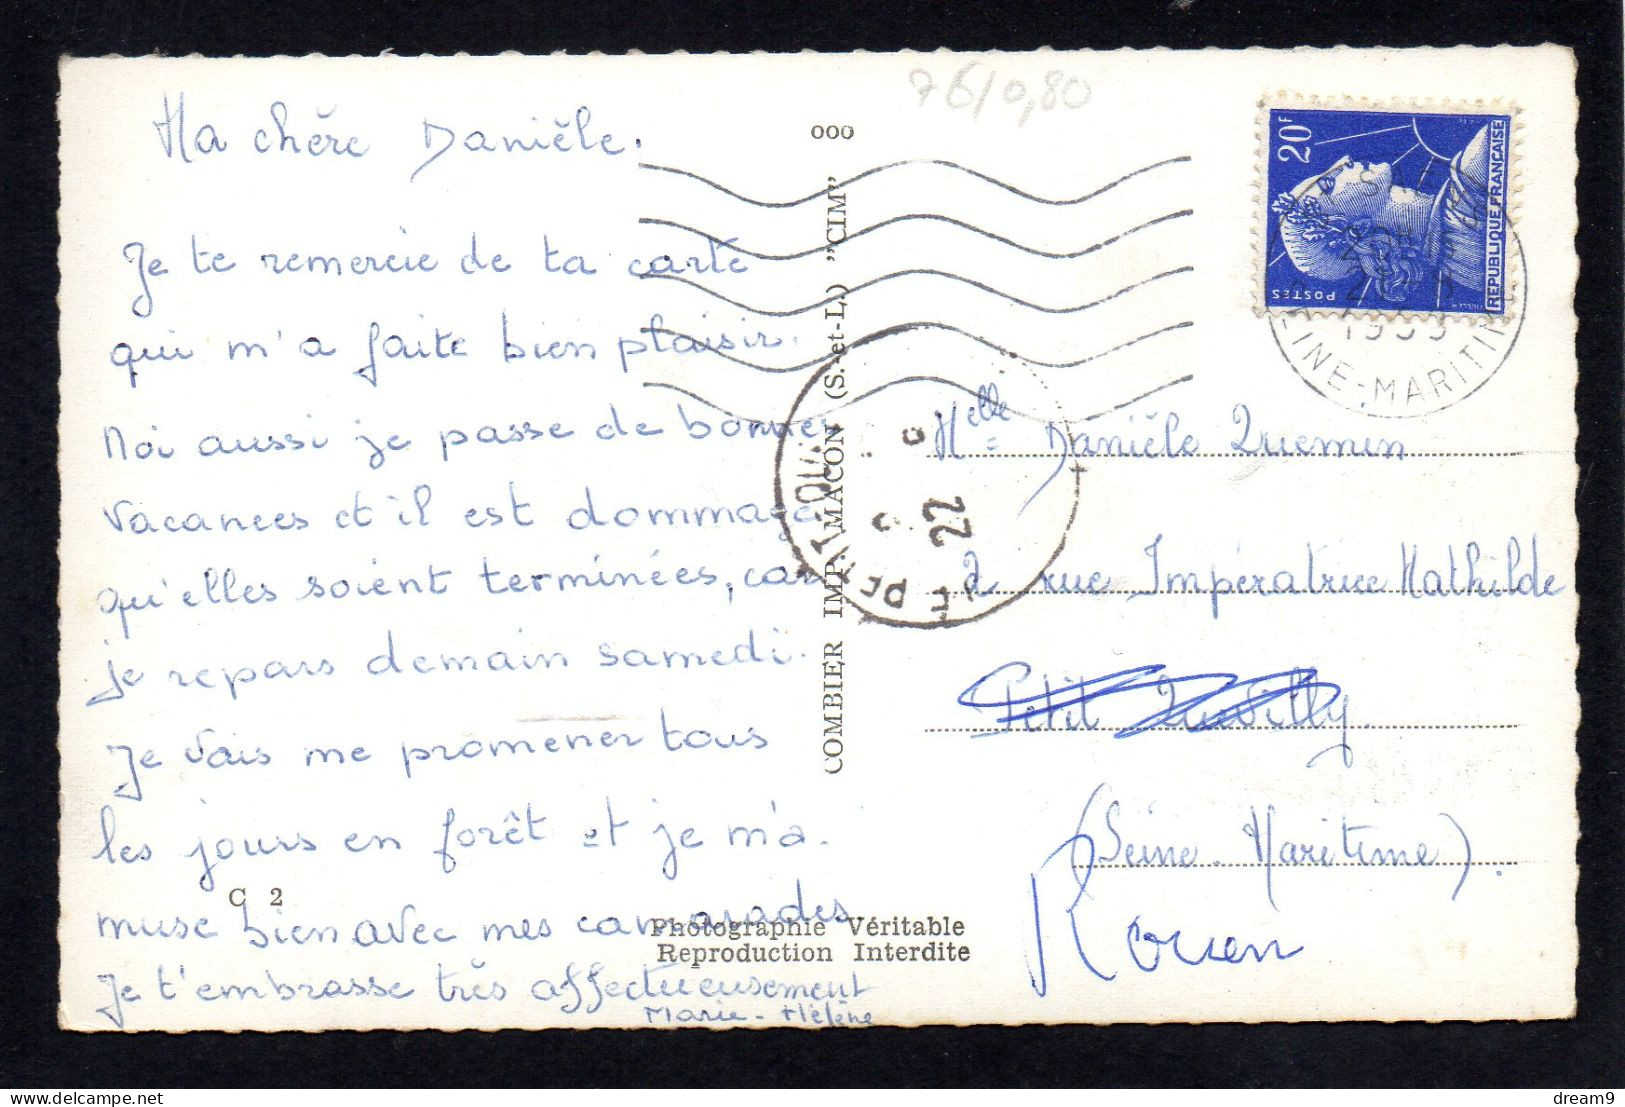 76/0,80
Ma chère Danièle.
Je te remercie de ta carte
qui m'a faite bien plaisir.
Moi aussi je passe de bonnes
vacances et il est dommage
qu'elles soient terminées, car
je repars demain samedi.
Je vais me promener tous
les jours en forêt et je m'a.
muse bien avec mes camarades
Je t'embrasse très affectueusement
Marie-Hélène
C 2
Photographie Véritable
Reproduction Interdite
000
COMBIER IMP. MACON (S.-et-L.) "CIM"
20F
POSTES
REPUBLIQUE FRANÇAISE
SEINE-MARITIME
LE PETIT QU
22
Melle Danièle Quemin
2 rue Impératrice Mathilde
Petit Quevilly
(Seine-Maritime).
Rouen
dream9